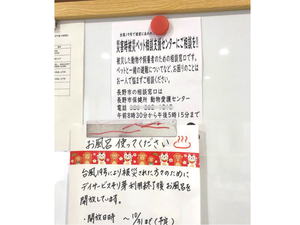 災害時被災ペット相談支援センターにご相談を!!
被災した動物や飼養者のための相談窓口です。
ペットと一緒の避難についてなど、お困りのことは
お一人で悩まずご相談ください。
長野市の相談窓口は
長野市保健所 動物愛護センター
電話
午前8時30分から午後5時15分まで
お風呂 使ってください
台風19号により被災された方々のために
デイサービス
利用終了後 お風呂を
開放しています。
・開放日時 〜10/31まで(予定)